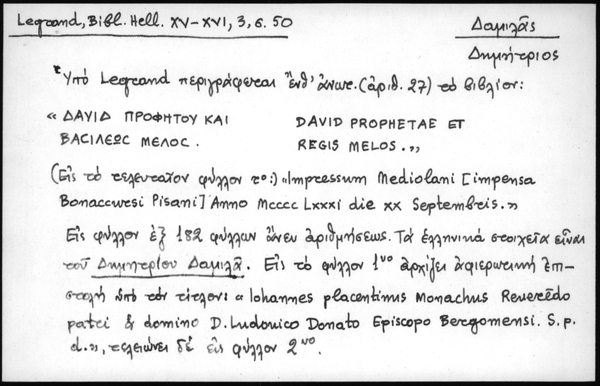 Legrand, Bibl. Hell. XV–XVI, 3, σ. 50
Δαμιλᾶς
Δημήτριος
Ὑπό Legrand περιγράφεται "ἔνθ' ἀνωτ. (ἀριθ. 27) τό βιβλίον:
« ΔΑΥΙΔ ΠΡΟΦΗΤΟΥ ΚΑΙ DAVID PROPHETAE ET
ΒΑCΙΛΕΩC ΜΕΛΟC. REGIS MELOS.»
(Εἰς τό τελευταῖον φύλλον το:) «Impressum Mediolani [impensa
Bonaccursi Pisani] Anno Mcccc Lxxxi die xx Septembris.»
Εἰς φύλλον ἐξ 182 φύλλων ἄνευ ἀριθμήσεως. Τά ἑλληνικά στοιχεῖα εἶναι
τοῦ Δημητρίου Δαμιλᾶ. Εἰς τό φύλλον 1νο ἀρχίζει ἀφιερωτική ἐπι-
στολή ὑπό τόν τίτλον: « Iohannes placentinus Monachus Reverēdo
patri & domino D. Ludovico Donato Episcopo Bergomensi. S. p.
d.», τελειώνει δέ εἰς φύλλον 2νο.